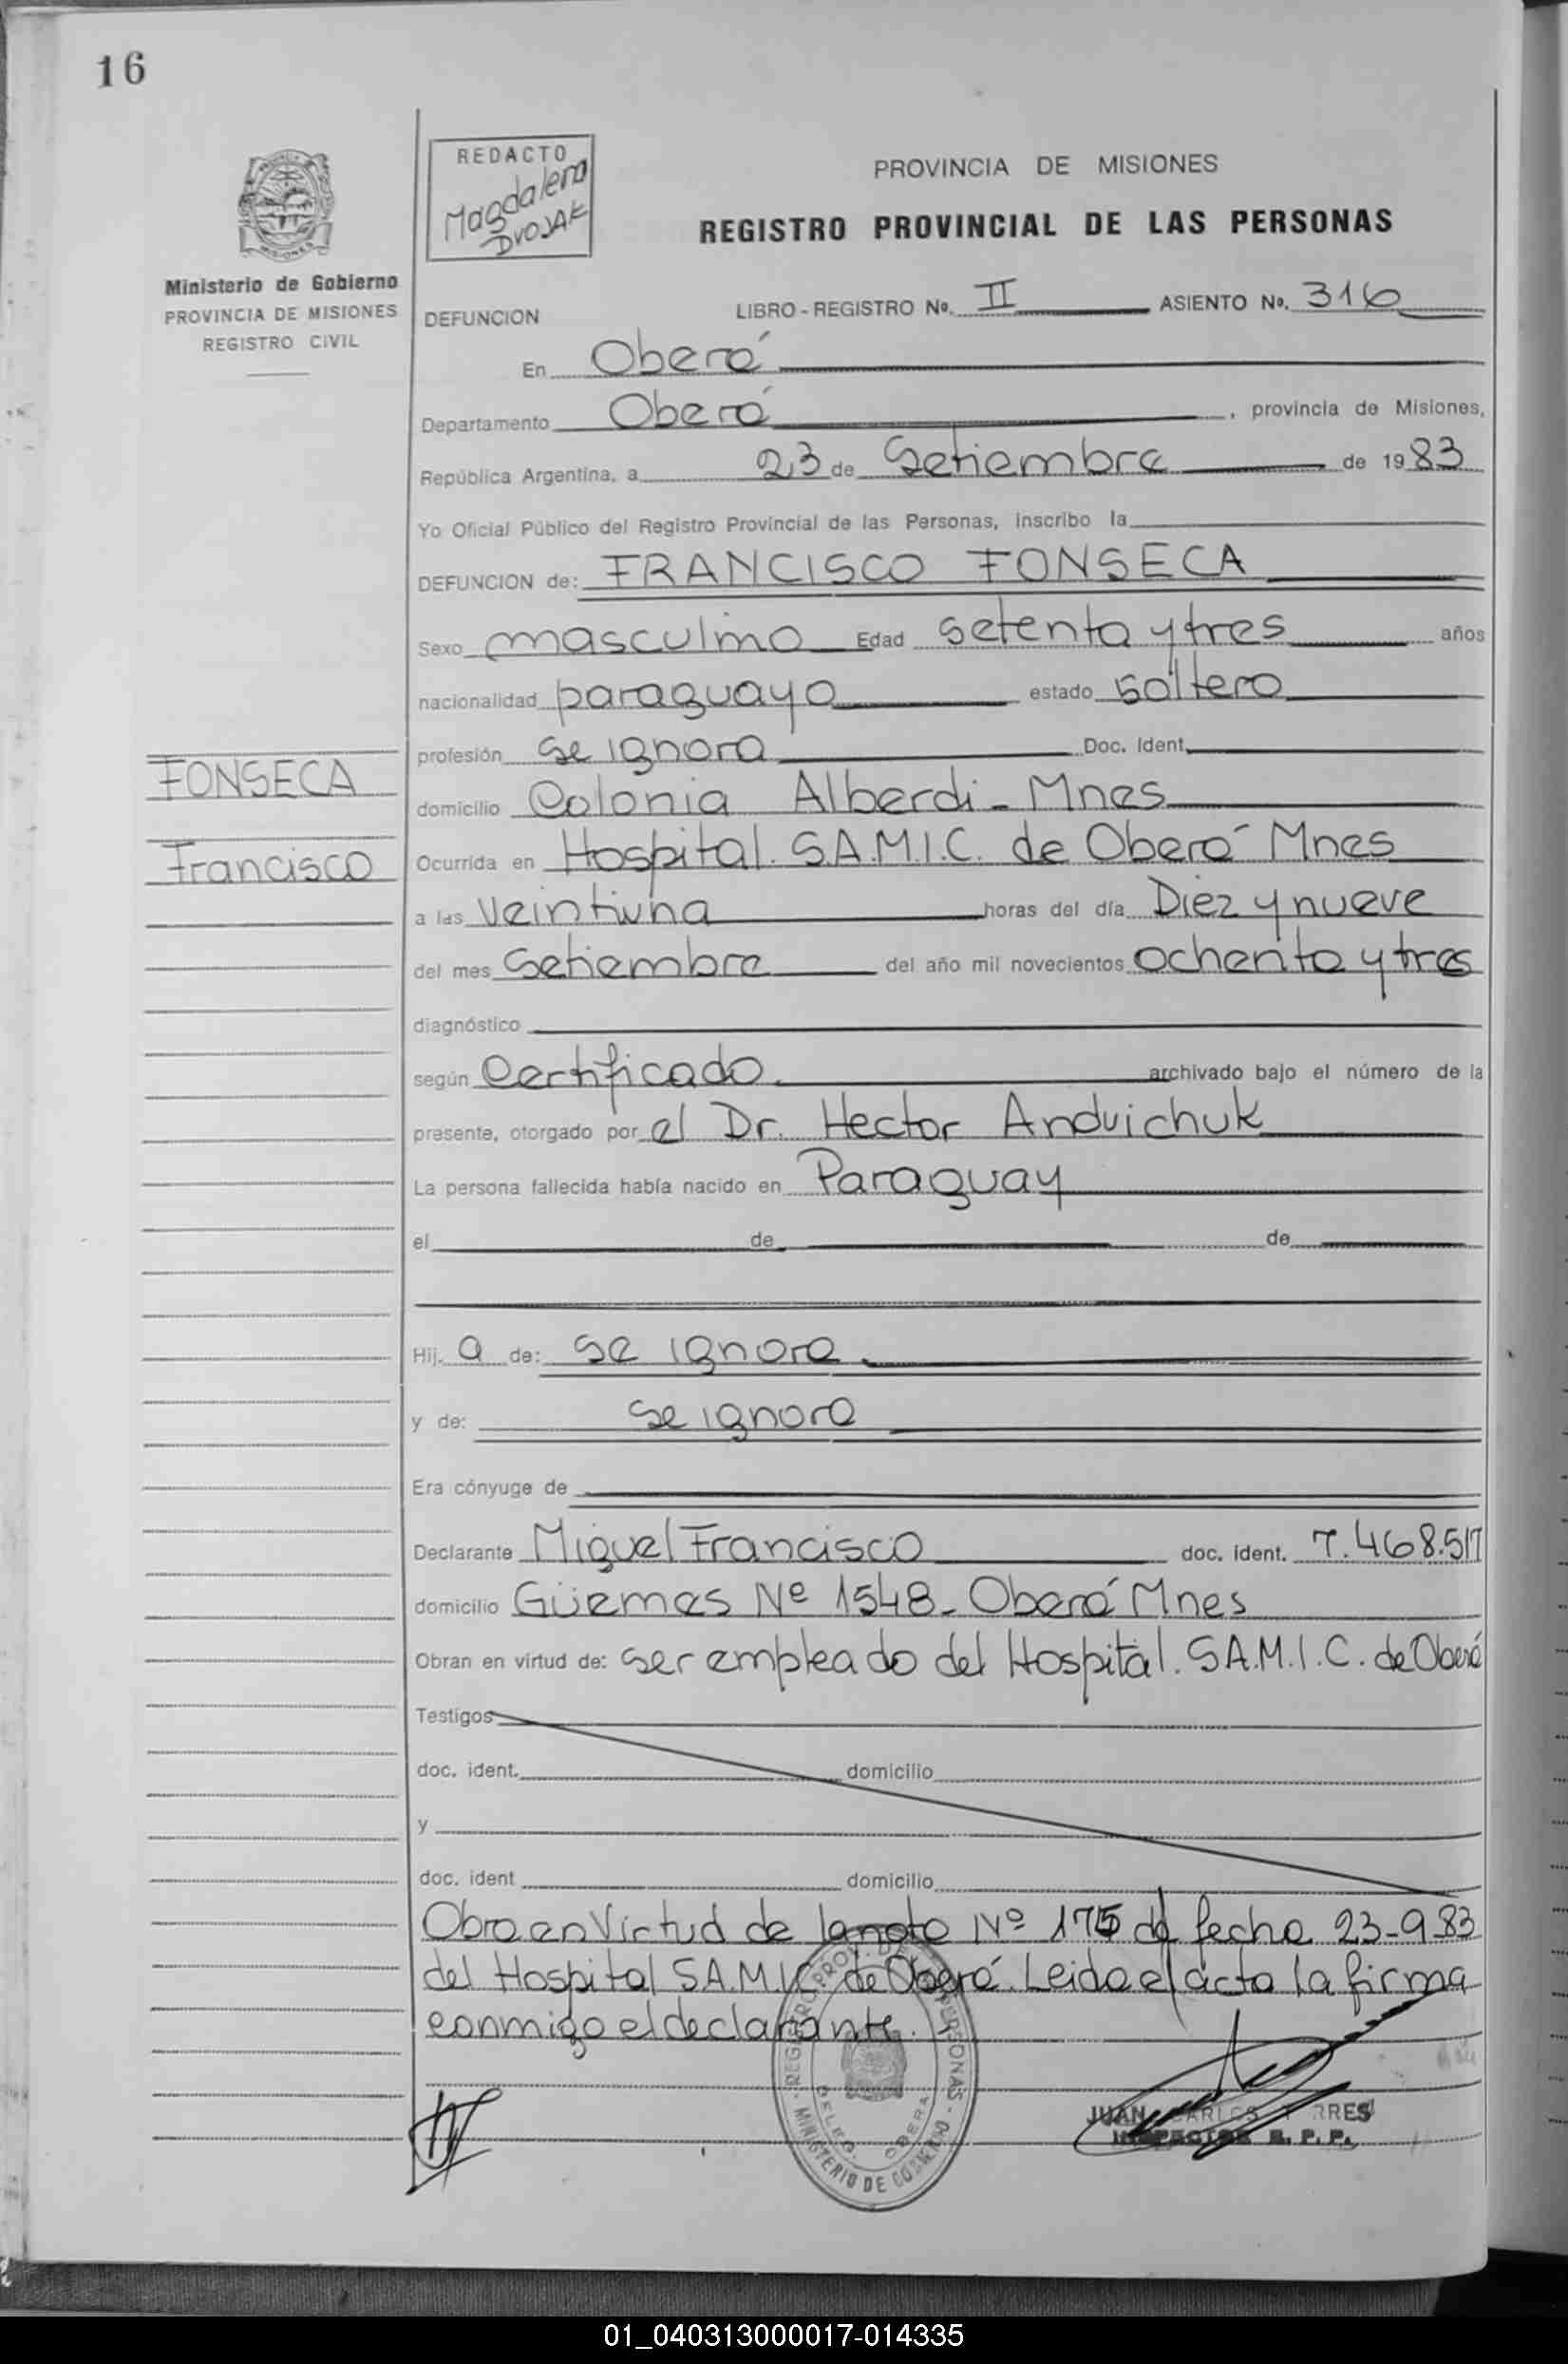 16
REDACTO
Magdalena
DVOJAK
PROVINCIA DE MISIONES
REGISTRO PROVINCIAL DE LAS PERSONAS
Ministerio de Gobierno
PROVINCIA DE MISIONES
REGISTRO CIVIL
DEFUNCION LIBRO-REGISTRO No. II ASIENTO No. 316
En Oberá
Departamento Oberá, provincia de Misiones,
República Argentina, a 23 de Setiembre de 1983
Yo Oficial Público del Registro Provincial de las Personas, inscribo la
DEFUNCION de: FRANCISCO FONSECA
Sexo masculino Edad setenta y tres años
nacionalidad paraguaya estado soltero
profesión se ignora Doc. Ident.
FONSECA
domicilio Colonia Alberdi - Mnes
Francisco
Ocurrida en Hospital. S.A.M.I.C. de Oberá Mnes
a las Veintiuna horas del día Diez y nueve
del mes Setiembre del año mil novecientos ochenta y tres
diagnóstico
según Certificado. archivado bajo el número de la
presente, otorgado por el Dr. Hector Andvichuk
La persona fallecida había nacido en Paraguay
el de de
Hij. a de: se ignora.
y de: se ignora
Era cónyuge de
Declarante Miguel Francisco doc. ident. 7.468.517
domicilio Güemes Nº 1548- Oberá Mnes
Obran en virtud de: ser empleado del Hospital. S.A.M.I.C. de Oberá
Testigos
doc. ident. domicilio
y
doc. ident domicilio
Obra en Virtud de la nota Nº 175 de fecha 23-9-83
del Hospital S.A.M.I.C. de Oberá. Leida el acta la firma
conmigo el declarante.
REGISTRO PROV. DE LAS PERSONAS - MINISTERIO DE GOBIERNO
DELEG. OBERA
JUAN CARLOS RRES
INSPECTOR R. P. P.
01_040313000017-014335